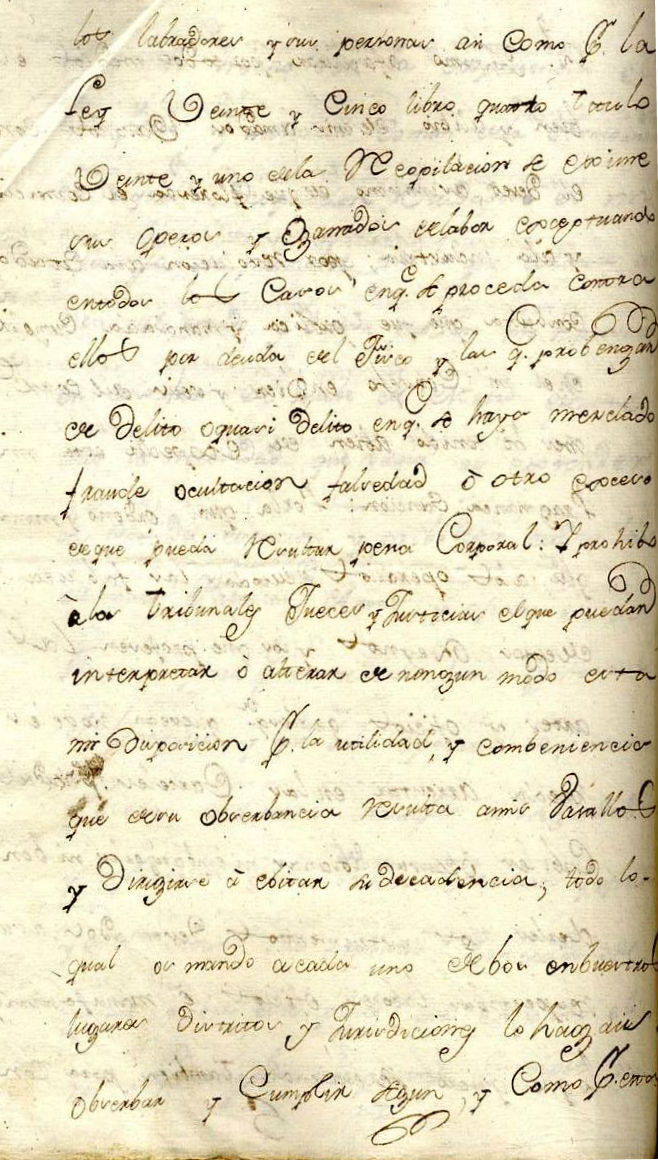 los labradores y sus personas asi como P. la
Ley Veinte y Cinco libro quarto titulo
Veinte y uno dela Recopilacion se exsime
sus Aperos y Ganados delabor exceptuando
entodos los Casos enq.e se proceda contra
ellos por deuda del Fisco y las q. probengan
de Delito oquasi Delito enq.e se haya mesclado
fraude ocultacion falsedad ò otro exceso
deque pueda resultar pena Corporal: Y prohibo
à los tribunales Jueces y Justicias elque puedan
interpretar ò alterar de ningun modo esta
mi Disposicion P. la utilidad, y combeniencia
que desu obserbancia resulta amis Vasallos
y Dirigirse à ebitar su decadencia, todo lo-
qual os mando acada uno de bos enbuestros
lugares Distritos y Jurisdiciones lo hagais
obserbar y Cumplir segun, y Como P. esta